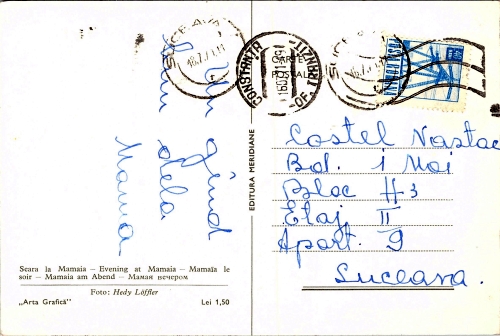 Un gînd
bun dela
Mama
Seara la Mamaia – Evening at Mamaia – Mamaïa le
soir – Mamaia am Abend – Мамая вечером
Foto: Hedy Löffler
„Arta Grafică”
Lei 1,50
EDITURA MERIDIANE
CARTE
POSTALĂ
CONSTANTA
TRANZIT
OF.
SUCEAVA
Costel Nastac
Bd. 1 Mai
Bloc H3
Etaj II
Apart. 9
Suceava.